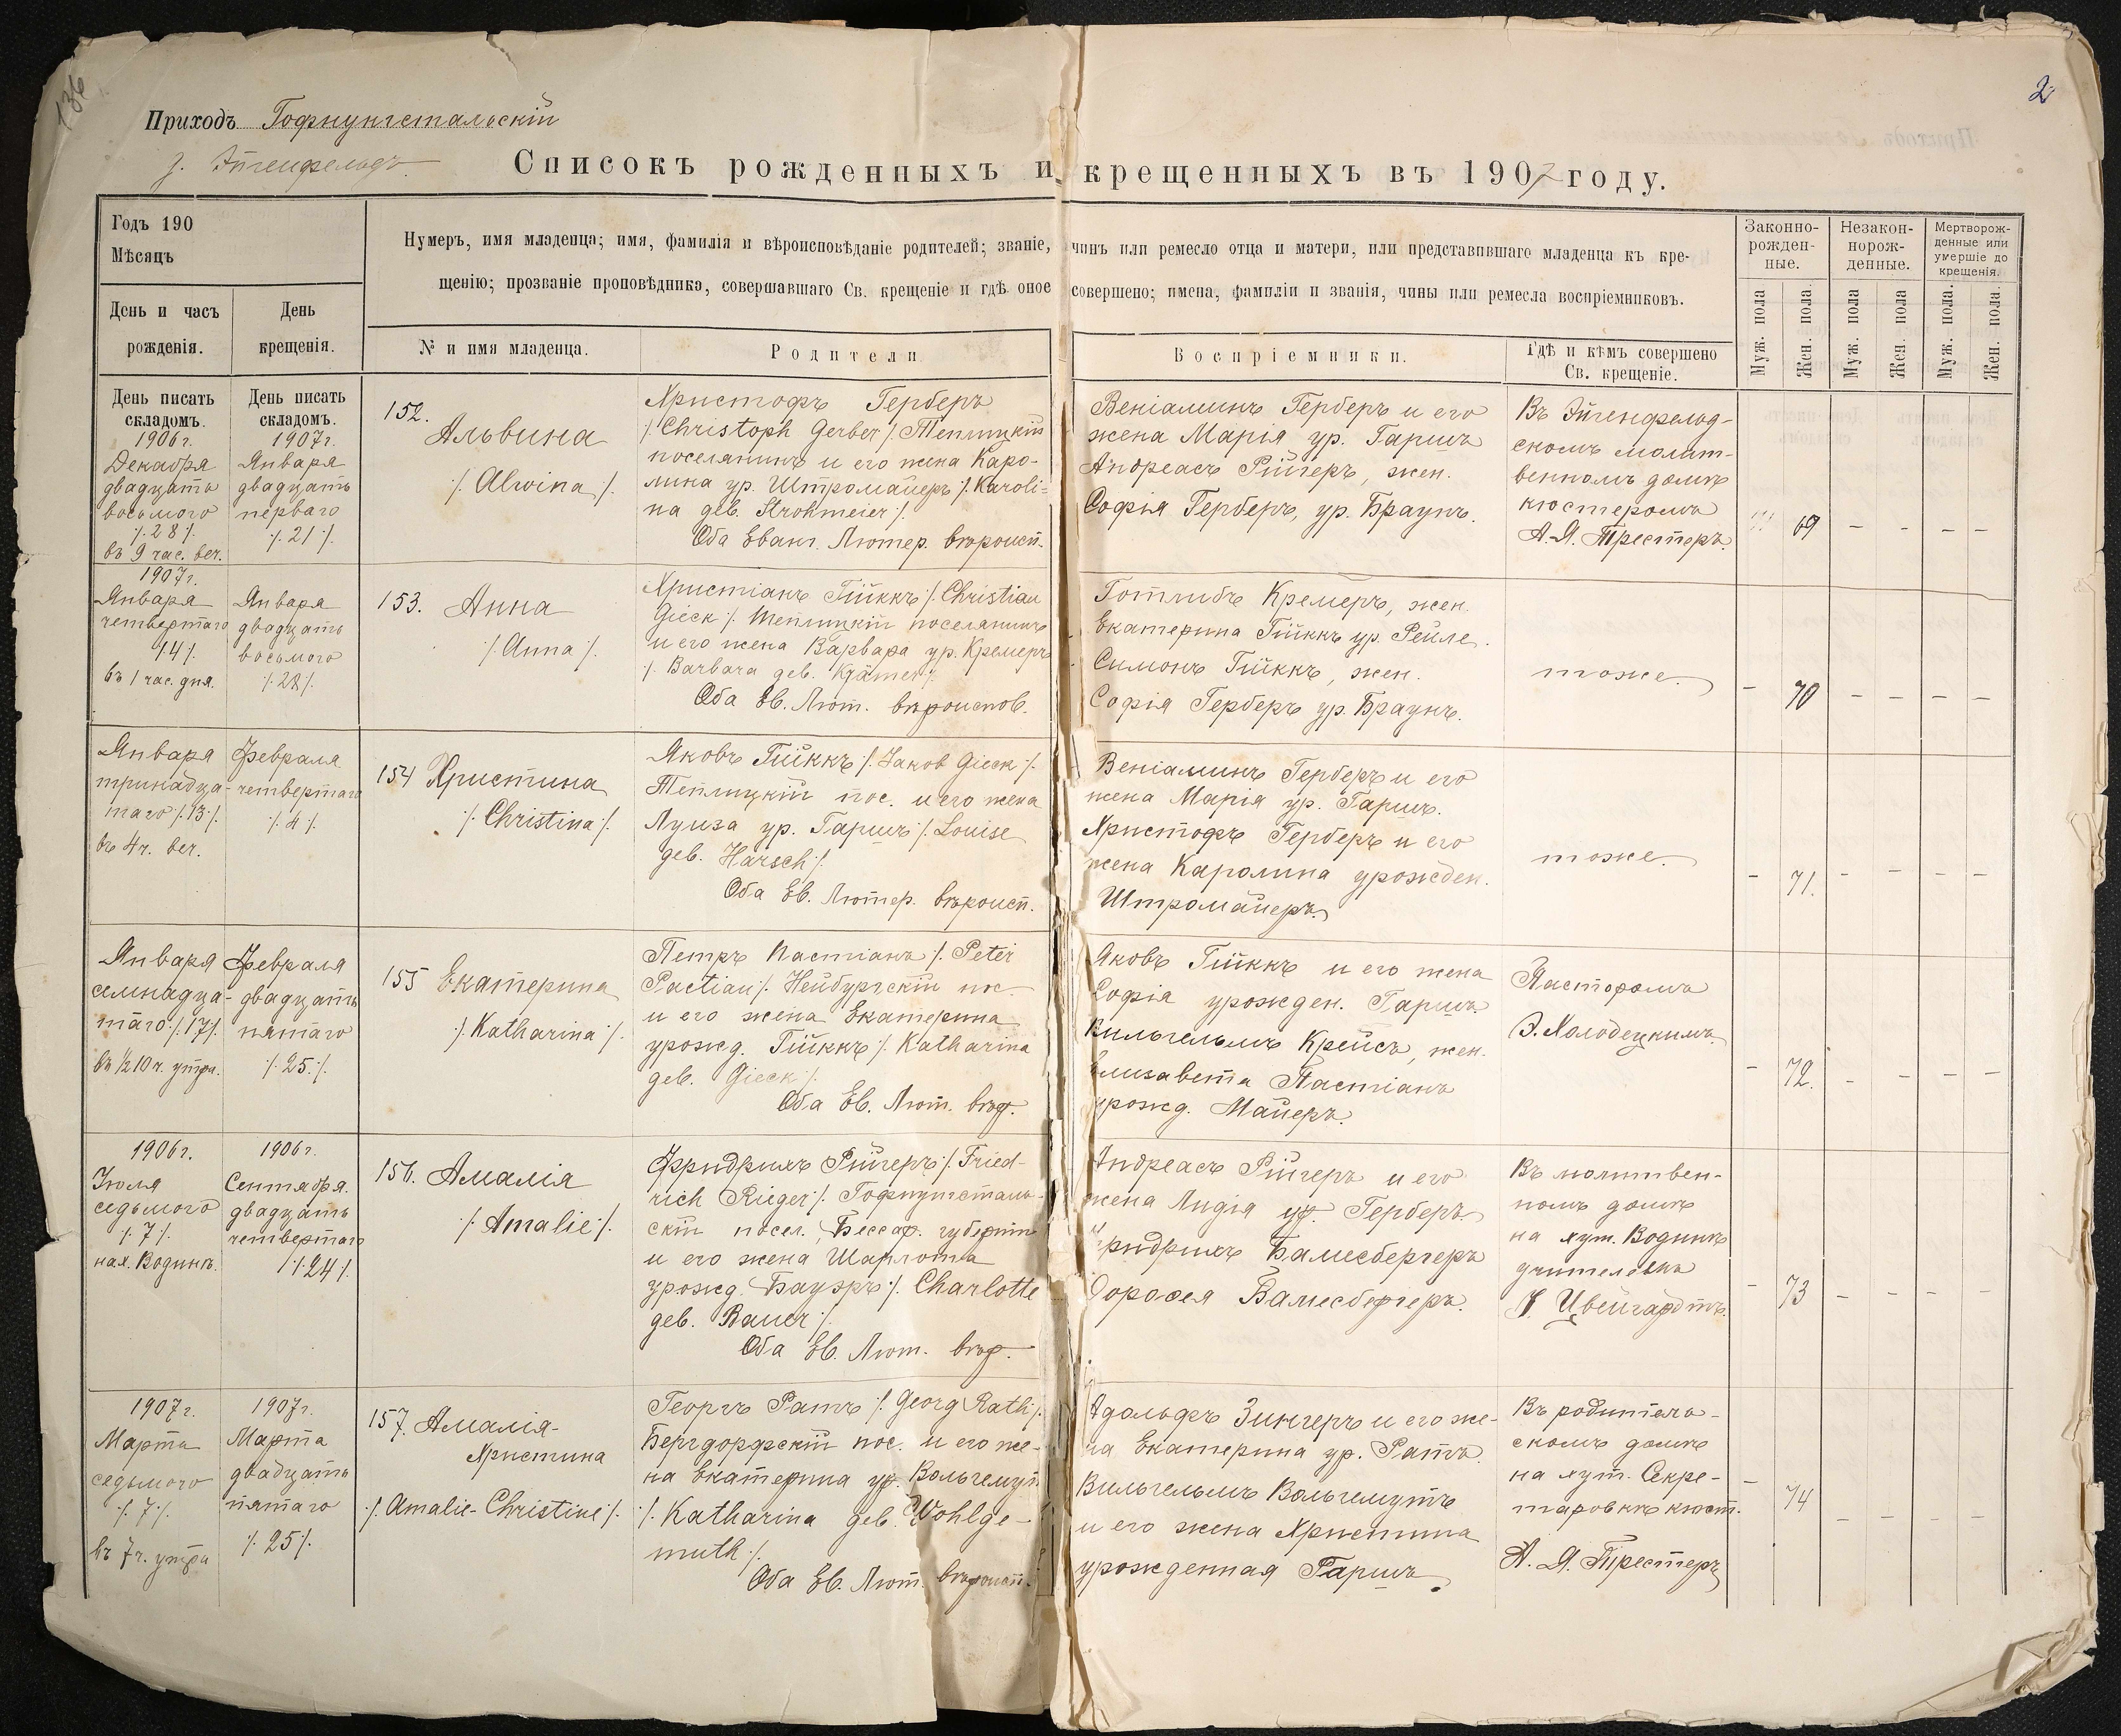 136
2
Приходъ Гофнунгстальскій
д. Эйгенфельдъ.
Списокъ рожденныхъ и крещенныхъ въ 1907 году.
Годъ 190
Мѣсяцъ
День и часъ
рожденія.
День
крещенія.
Нумеръ, имя младенца; имя, фамилія и вѣроисповѣданіе родителей; званіе, чинъ или ремесло отца и матери, или представившаго младенца къ кре-
щенію; прозваніе проповѣдника, совершавшаго Св. крещеніе и гдѣ оное совершено; имена, фамиліи и званія, чины или ремесла воспріемниковъ.
№ и имя младенца.
Родители
Воспріемники.
Гдѣ и кѣмъ совершено
Св. крещеніе.
Законно-
рожден-
ные.
Незакон-
норож-
денные.
Мертворож-
денные или
умершіе до
крещенія.
Муж. пола
Жен. пола.
Муж. пола
Жен. пола
Муж. пола.
Жен. пола.
День писать
складомъ.
1906 г.
Декабря
двадцать
восьмого
/:28:/
въ 9 час. веч.
День писать
складомъ.
1907 г.
Января
двадцать
перваго
/:21:/
152.
Альвина
/: Alwina :/
Христофъ Герберъ
/: Christoph Gerber :/ Теплицкій
поселянинъ и его жена Каро-
лина ур. Штромайеръ /: Karoli=
na geb. Strohmeier :/
Оба Еванг. Лютер. вѣроисп.
Веніаминъ Герберъ и его
жена Марія ур. Гаршъ
Андреасъ Рійгеръ, жен.
Софія Герберъ, ур. Браунъ.
Въ Эйгенфельд-
скомъ молит-
венномъ домѣ
кюстеромъ
А. Я. Трестеръ.
69 – – – –
1907 г.
Января
четвертаго
/:4:/
въ 1 час. дня.
Января
двадцать
восьмого
/:28:/
153. Анна
/: Anna :/
Христіанъ Гійккъ /: Christian
Gieck :/ Теплицкій поселянинъ
и его жена Варвара ур. Кремеръ
/: Barbara geb. Krämer :/
Оба Ев. Лют. вѣроиспов.
Готлибъ Кремеръ, жен.
Екатерина Гійккъ ур. Рейле.
Симонъ Гійккъ, жен.
Софія Герберъ ур. Браунъ.
тоже.
– 70 – – – –
Января
тринадца-
таго /:13:/
въ 4 ч. веч.
Февраля
четвертаго
/:4:/
154 Христина
/: Christina :/
Яковъ Гійккъ /: Jakob Gieck :/
Теплицкій пос. и его жена
Луиза ур. Гаршъ /: Louise
geb. Harsch :/
Оба Ев. Лютер. вѣроисп.
Веніаминъ Герберъ и его
жена Марія ур. Гаршъ.
Христофъ Герберъ и его
жена Каролина урожден.
Штромайеръ.
тоже.
– 71. – – – –
Января
семнадца-
таго /:17:/
въ ½ 10 ч. утра.
Февраля
двадцать
пятаго
/:25:/
155 Екатерина
/: Katharina :/
Петръ Пастіанъ /: Peter
Pastian :/ Нейбургскій пос.
и его жена Екатерина
урожд. Гійккъ /: Katharina
geb. Gieck :/
Оба Ев. Лют. вѣр.
Яковъ Гійккъ и его жена
Софія урожден. Гаршъ.
Вильгельмъ Крейсъ, жен.
Елизавета Пастіанъ
урожд. Майеръ.
Пасторомъ
Э. Холодецкимъ.
– 72. – – – –
1906 г.
Іюля
седьмого
/:7:/
на х. Водинъ.
1906 г.
Сентября.
двадцать
четвертаго
/:24:/
156. Амалія
/: Amalie :/
Фридрихъ Рійгеръ /: Fried-
rich Rieger :/ Гофнунгсталь-
скій посел., Бессар. губерніи
и его жена Шарлотта
урожд. Бауэръ /: Charlotte
geb. Bauer :/
Оба Ев. Лют. вѣр.
Андреасъ Рійгеръ и его
жена Лидія ур. Герберъ.
Фридрихъ Бамесбергеръ
Доротея Бамесбергеръ.
Въ молитвен-
номъ домѣ
на хут. Водинъ
учителемъ
Цвейгардтъ.
– 73 – – – –
1907 г.
Марта
седьмого
/:7:/
въ 7 ч. утра
1907 г.
Марта
двадцать
пятаго
/:25:/
157. Амалія-
Христина
/: Amalie-Christine :/
Георгъ Ратъ /: Georg Rath :/
Бергдорфскій пос. и его же-
на Екатерина ур. Вольгемутъ
/: Katharina geb. Wohlge-
muth :/
Оба Ев. Лют. вѣроисп.
Адольфъ Зингеръ и его же-
на Екатерина ур. Ратъ.
Вильгельмъ Вольгемутъ
и его жена Христина
урожденная Гаршъ.
Въ родитель-
скомъ домѣ
на хут. Секре-
таровкѣ кюст.
А. Я. Трестеръ
– 74 – – – –